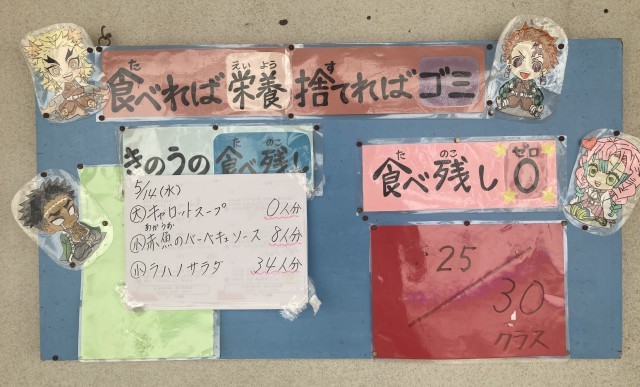 食べれば栄養 捨てればゴミ
きのうの 食べ残し
食べ残し 0
5/14(水)
大 キャロットスープ 0人分
小 赤魚のバーベキュソース 8人分
小 ラハノサラダ 34人分
25
30
クラス